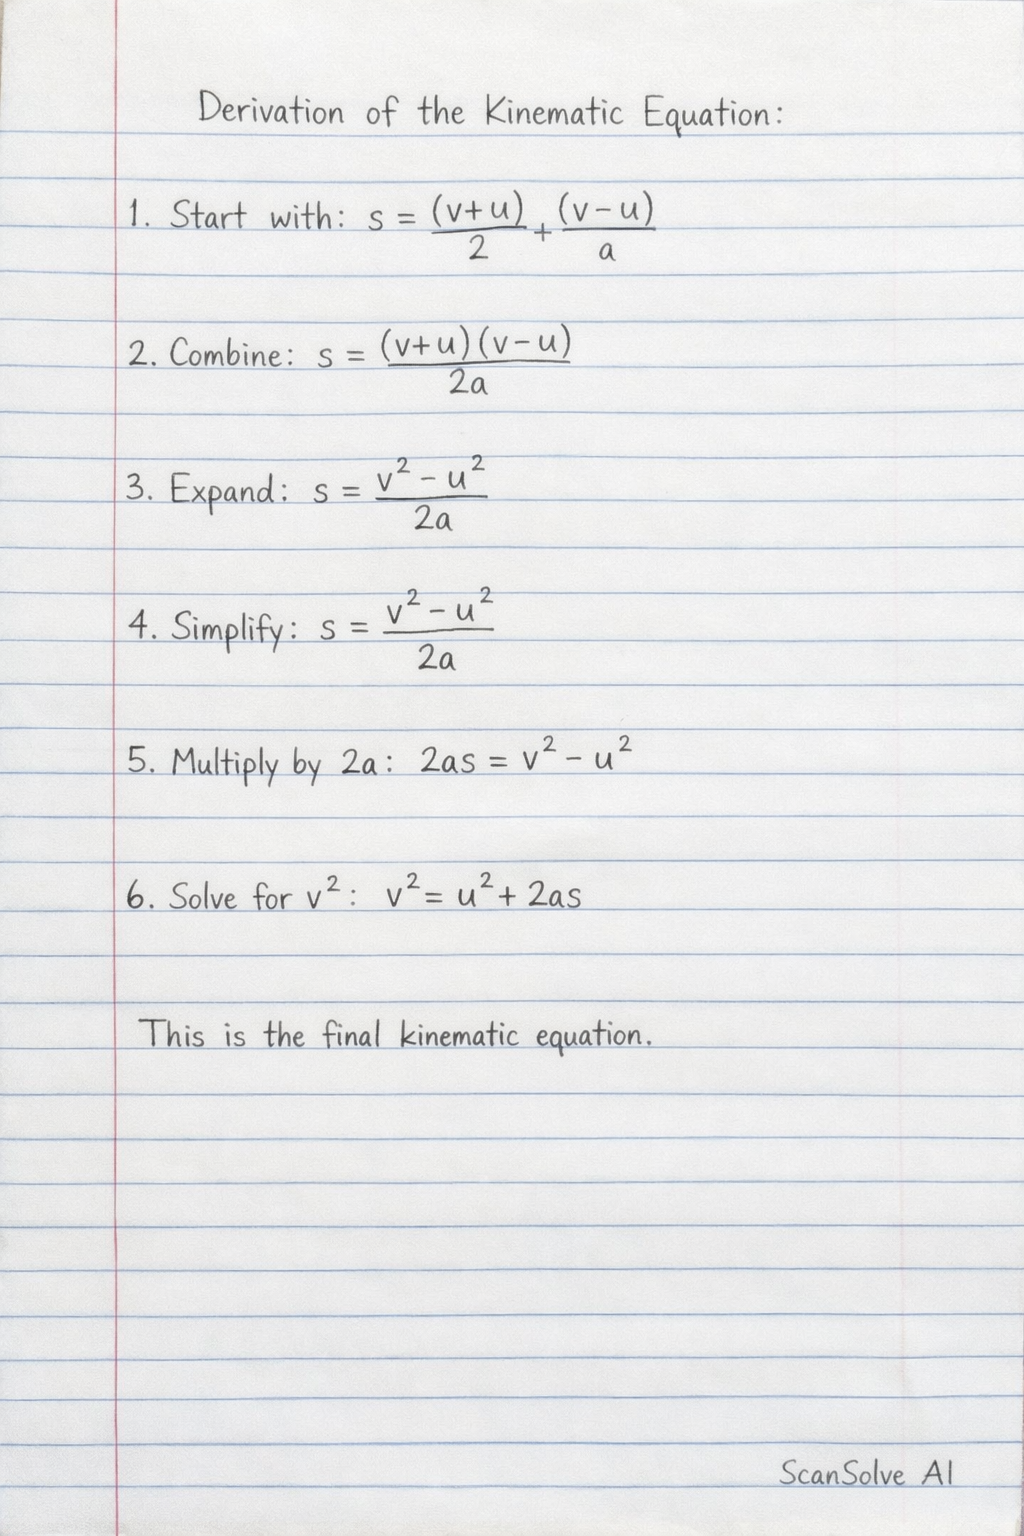 Derivation of the Kinematic Equation:
1. Start with: s = (v+u)/2 + (v-u)/a
2. Combine: s = (v+u)(v-u)/2a
3. Expand: s = v² - u²/2a
4. Simplify: s = v² - u²/2a
5. Multiply by 2a: 2as = v² - u²
6. Solve for v²: v² = u² + 2as
This is the final kinematic equation.
ScanSolve AI